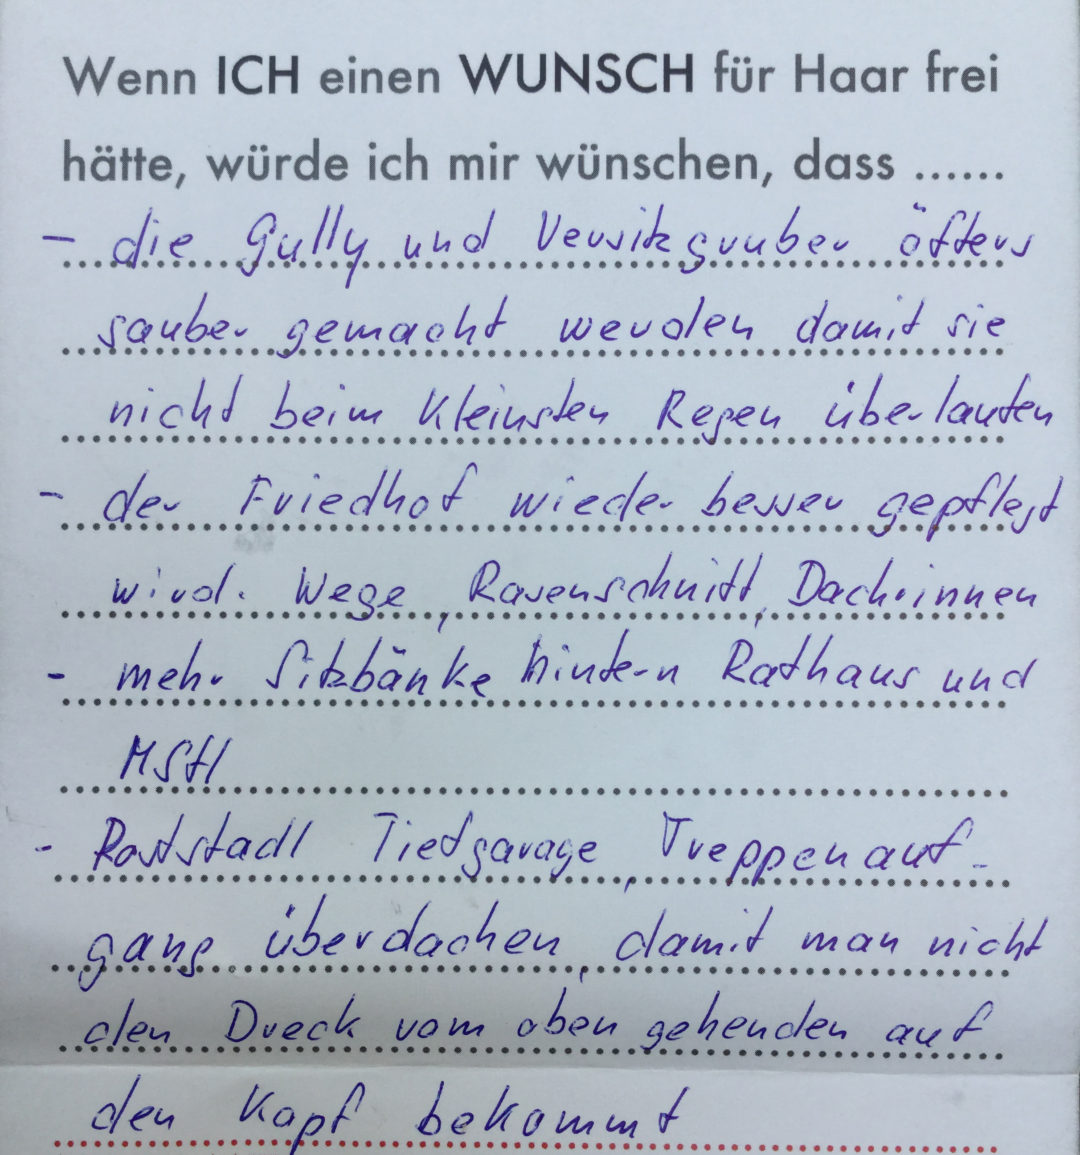 Wenn ICH einen WUNSCH für Haar frei
hätte, würde ich mir wünschen, dass ......
- die Gully und Versitzgruber öfters
sauber gemacht werden damit sie
nicht beim kleinsten Regen überlaufen
- der Friedhof wieder besser gepflegt
wird. Wege, Rasenschnitt, Dachrinnen
- mehr Sitzbänke hintern Rathaus und
MStl
- Poststadl Tiefgarage, Treppenauf-
gang überdachen, damit man nicht
den Dreck vom oben gehenden auf
den Kopf bekommt